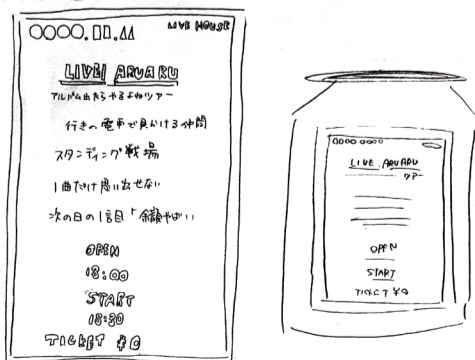 0000.11.11
LIVE HOUSE
LIVE! ARUARU
アルバム出たらやるよねツアー
行きの電車で見かける仲間
スタンディング戦場
1曲だけ思い出せない
次の日の1言目「余韻やばい
OPEN
18:00
START
18:30
TICKET ¥0
0000 0000
LIVE ARUARU
ツアー
OPEN
START
TICKET ¥0